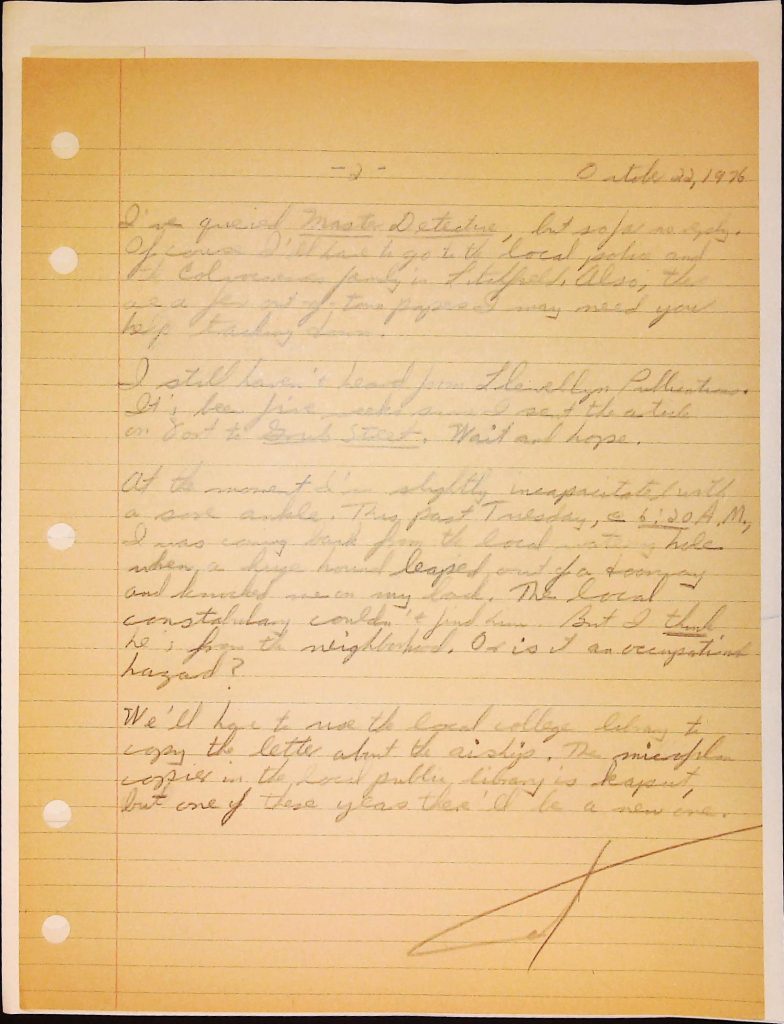 -2-
October 22, 1976
I've queried Master Detective, but so far no reply.
Of course I'll have to go to the local police and
the family in Litchfield. Also, there
are a few out of town papers I may need your
help tracking down.
I still haven't heard from Llewellyn Publications.
It's been five weeks since I sent the article
on Fort to Grub Street. Wait and hope.
At the moment I'm slightly incapacitated with
a sore ankle. This past Tuesday, @ 6:20 A.M.,
I was coming back from the local watering hole
when a huge hound leaped out of a doorway
and knocked me on my back. The local
constabulary couldn't find him. But I think
he's from the neighborhood. Or is it an occupational
hazard?
We'll have to use the local college library to
copy the letter about the airship. The microfilm
copier in the local public library is kaput,
but one of these years there'll be a new one.